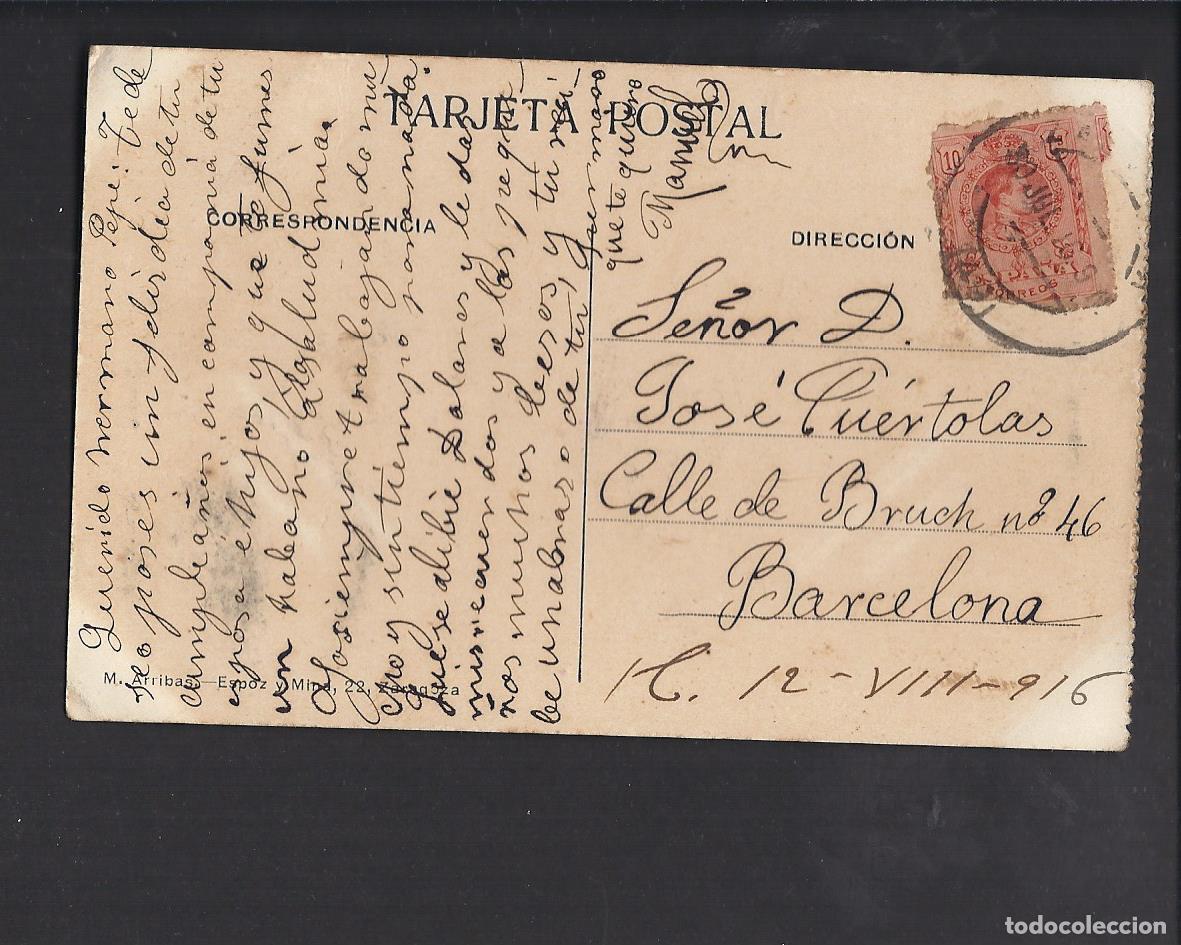 TARJETA POSTAL
CORRESPONDENCIA
DIRECCIÓN
Querido hermano Pepe: Te de
seo pases un feliz dia de tu
cumpleaños en compañia de tu
esposa é hijos, y que te fumes
un habano á la salud mia.
Yo siempre trabajando mu
cho y sin tiempo para nada.
y le das
mis recuerdos y a las peque
ñas muchos besos y tu reci
be un abrazo de tu hermano
que te quiere
Manuel
Señor D.
José Cuértolas
Calle de Bruch nº 46
Barcelona
C. 12-VIII-916
M. Arribas.—Espoz y Mina, 22, Zaragoza
10
CORREOS
todocoleccion